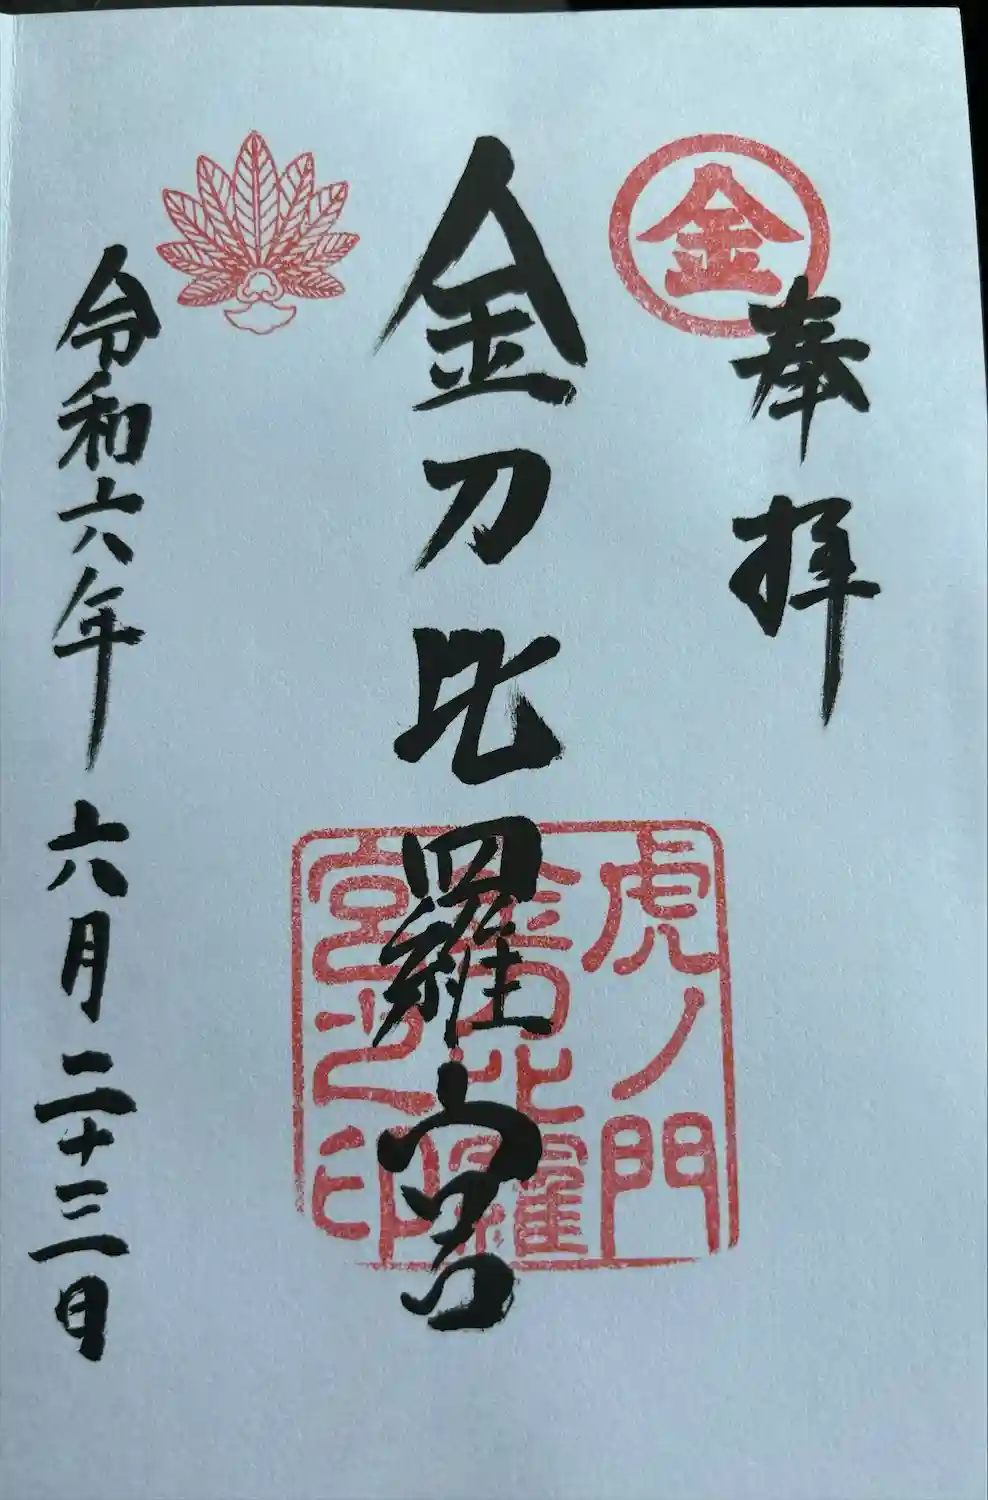 奉拝
金
金刀比羅宮
虎ノ門
金刀比羅
宮之印
令和六年 六月 二十三日